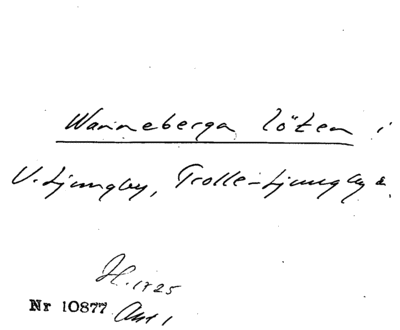 Wanneberga löten i
V. Ljungby, Trolle-Ljungby &.
H. 1825
Nr 10877 Akt 1